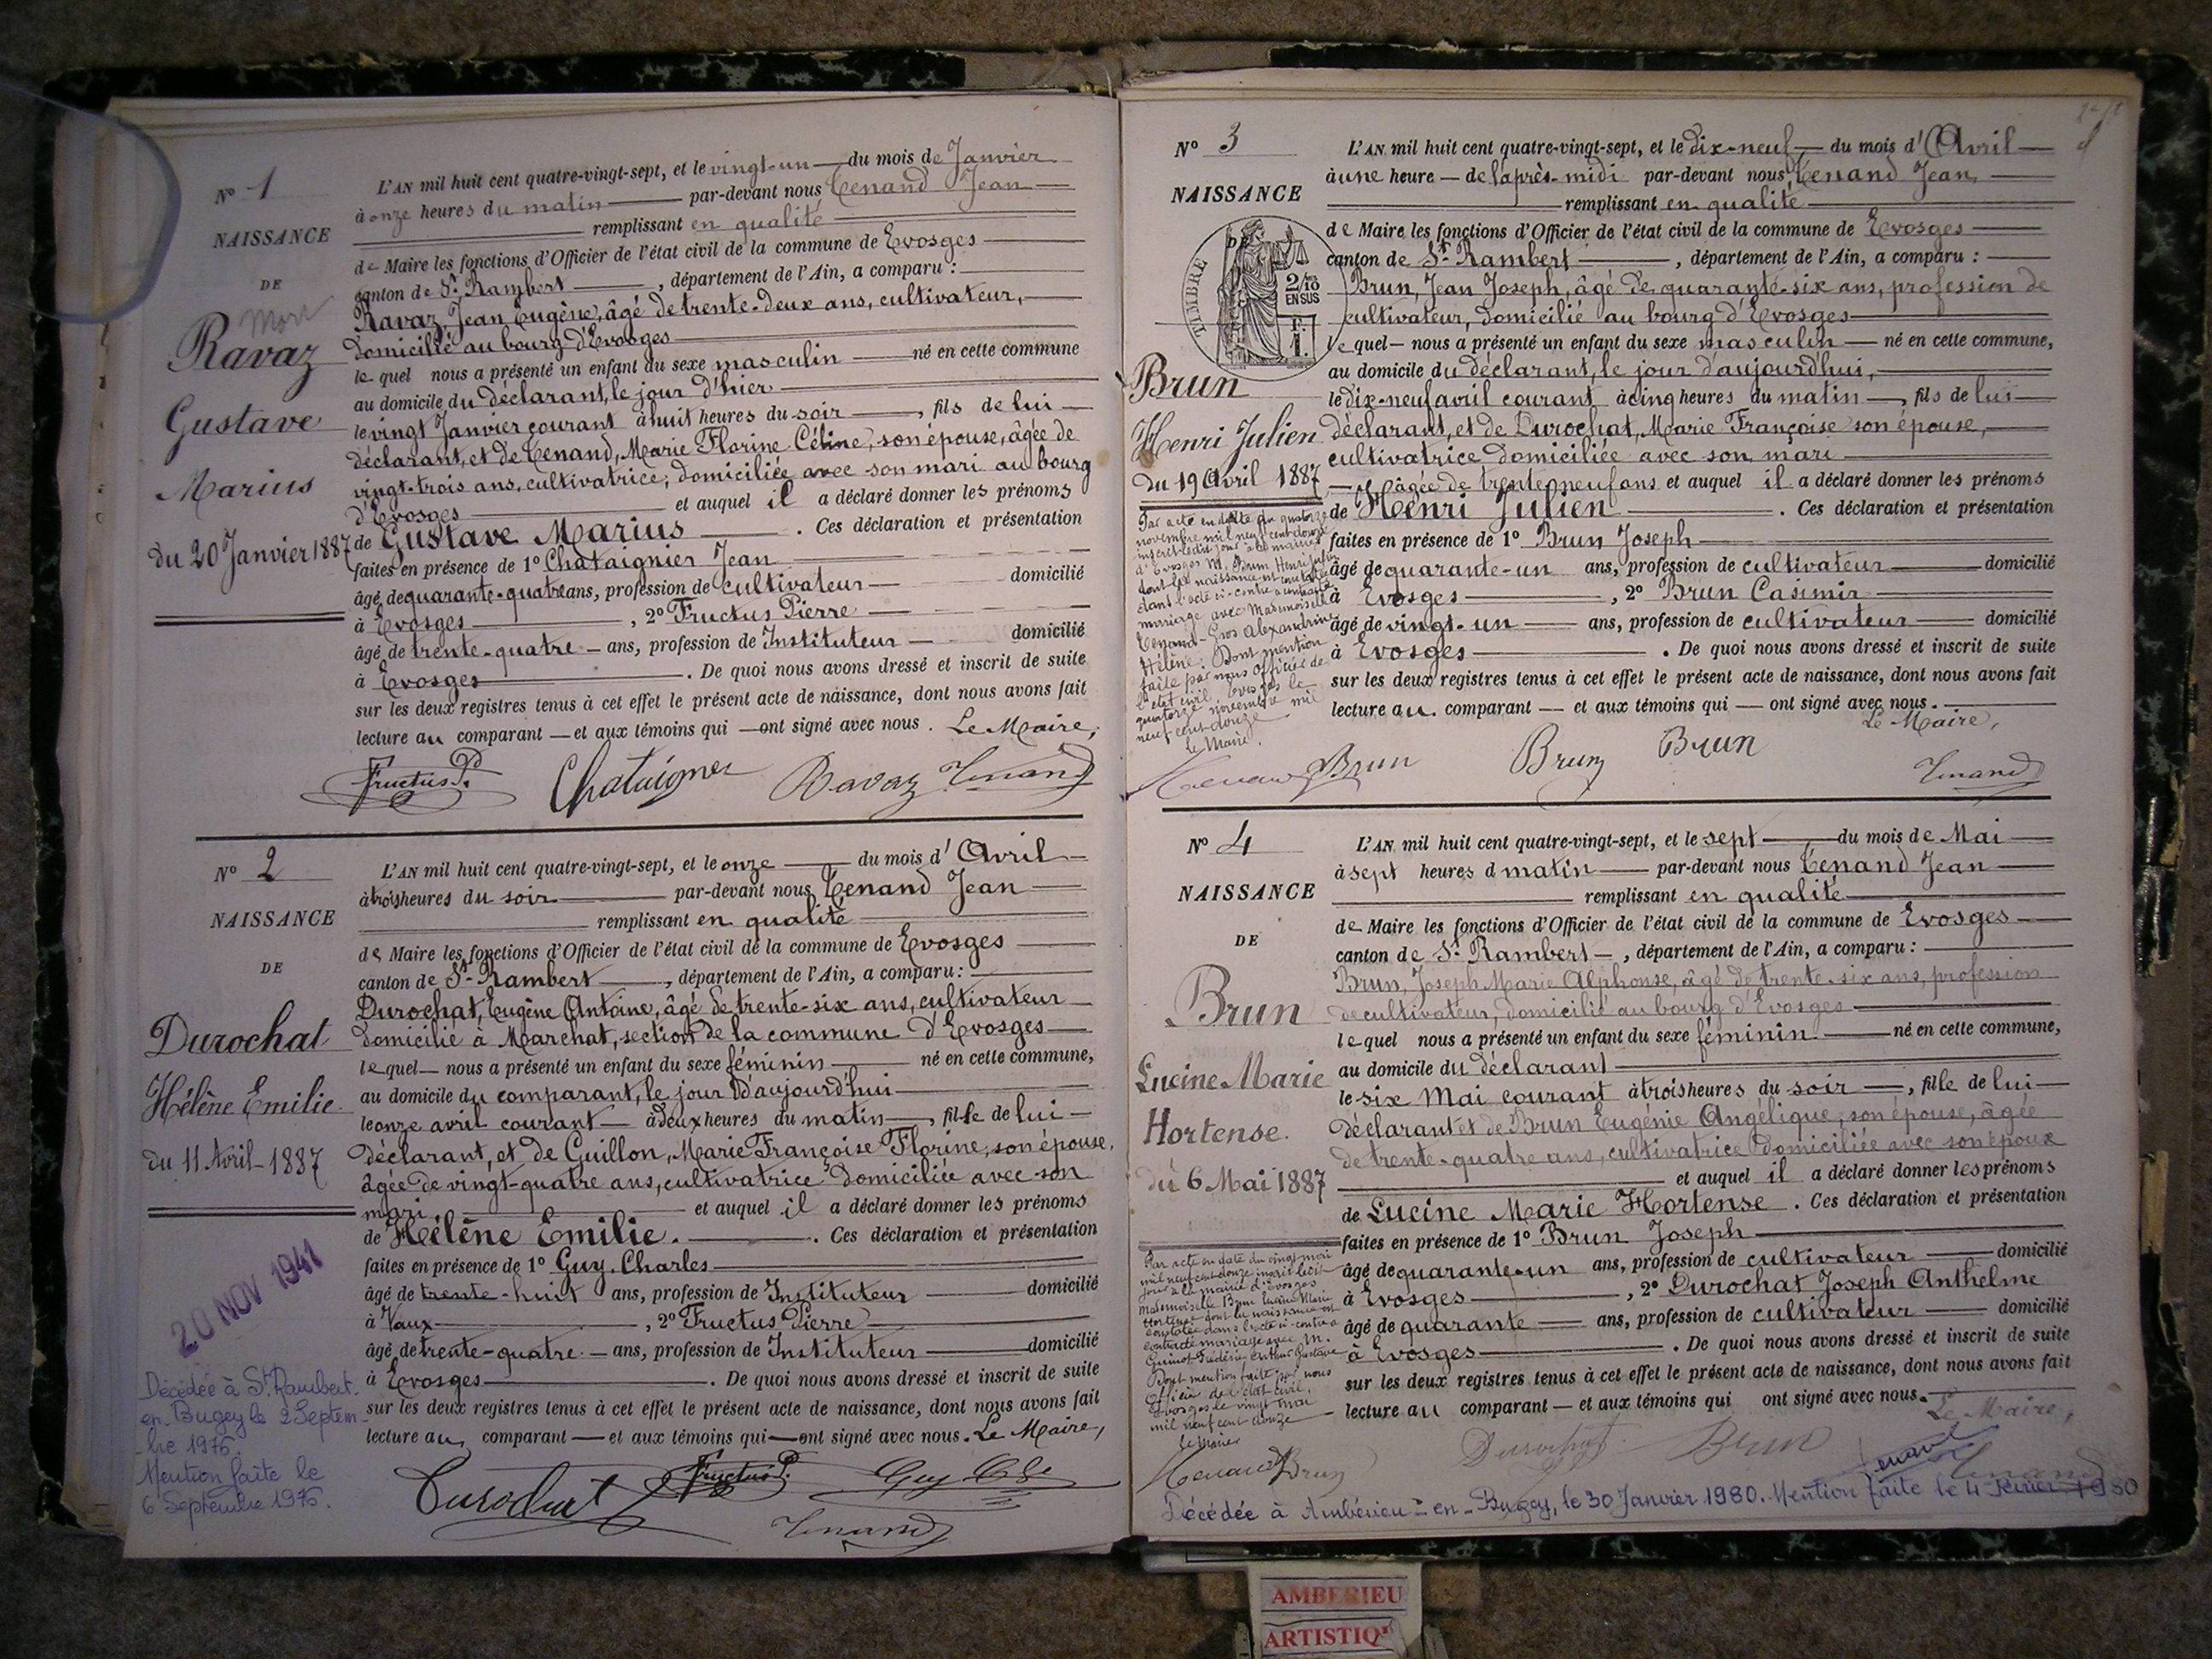 Nº 1
NAISSANCE
DE
Mort
Ravaz
Gustave
Marius
du 20 Janvier 1887
L'AN mil huit cent quatre-vingt-sept, et le vingt-un du mois de Janvier
à onze heures du matin par-devant nous Tenand Jean
remplissant en qualité
de Maire les fonctions d'Officier de l'état civil de la commune de Evosges
canton de St Rambert, département de l'Ain, a comparu :
Ravaz, Jean Eugène, âgé de trente-deux ans, cultivateur,
domicilié au bourg d'Evosges
le quel nous a présenté un enfant du sexe masculin né en cette commune
au domicile du déclarant, le jour d'hier
le vingt Janvier courant à huit heures du soir, fils de lui
déclarant, et de Tenand, Marie Florine Céline, son épouse, âgée de
vingt-trois ans, cultivatrice, domiciliée avec son mari au bourg
d'Evosges et auquel il a déclaré donner les prénoms
de Gustave Marius. Ces déclaration et présentation
faites en présence de 1º Chataignier Jean
âgé de quarante-quatre ans, profession de cultivateur domicilié
à Evosges, 2º Fructus Pierre
âgé de trente-quatre ans, profession de Instituteur domicilié
à Evosges. De quoi nous avons dressé et inscrit de suite
sur les deux registres tenus à cet effet le présent acte de naissance, dont nous avons fait
lecture au comparant et aux témoins qui ont signé avec nous. Le Maire,
Fructus P. Chataigner Ravaz Tenand
Nº 2
NAISSANCE
DE
Durochat
Hélène Emilie
du 11 Avril 1887
20 NOV 1941
Décédée à St Rambert
en Bugey le 2 Septem-
bre 1975.
Mention faite le
6 Septembre 1975.
L'AN mil huit cent quatre-vingt-sept, et le onze du mois d'Avril
à trois heures du soir par-devant nous Tenand Jean
remplissant en qualité
de Maire les fonctions d'Officier de l'état civil de la commune de Evosges
canton de St Rambert, département de l'Ain, a comparu :
Durochat, Eugène Antoine, âgé de trente-six ans, cultivateur
domicilié à Marchat, section de la commune d'Evosges
le quel nous a présenté un enfant du sexe féminin né en cette commune,
au domicile du comparant, le jour d'aujourd'hui
le onze avril courant à deux heures du matin, fille de lui
déclarant, et de Guillon, Marie Françoise Florine, son épouse,
âgée de vingt-quatre ans, cultivatrice domiciliée avec son
mari, et auquel il a déclaré donner les prénoms
de Hélène Emilie. Ces déclaration et présentation
faites en présence de 1º Guy, Charles
âgé de trente-huit ans, profession de Instituteur domicilié
à Vaux, 2º Fructus Pierre
âgé de trente-quatre ans, profession de Instituteur domicilié
à Evosges. De quoi nous avons dressé et inscrit de suite
sur les deux registres tenus à cet effet le présent acte de naissance, dont nous avons fait
lecture au comparant et aux témoins qui ont signé avec nous. Le Maire,
Durochat Fructus P. Guy Ch
Tenand
Nº 3
NAISSANCE
TIMBRE
2/10
EN SUS
F.
1.
Brun
Henri Julien
du 19 Avril 1887
Par acte en date du quatorze
novembre mil neuf cent douze
inscrit ledit jour à la mairie
d'Evosges M. Brun Henri Julien
dont la naissance est constatée
dans l'acte ci-contre a contracté
mariage avec Mademoiselle
Tenand-Gros Alexandrine
Hélène. Dont mention
faite par nous officier de
l'état civil. Evosges le
quatorze novembre mil
neuf cent douze
Le Maire.
L'AN mil huit cent quatre-vingt-sept, et le dix-neuf du mois d'Avril
à une heure de l'après-midi par-devant nous Tenand Jean,
remplissant en qualité
de Maire les fonctions d'Officier de l'état civil de la commune de Evosges
canton de St Rambert, département de l'Ain, a comparu :
Brun, Jean Joseph, âgé de quarante-six ans, profession de
cultivateur, domicilié au bourg d'Evosges
le quel nous a présenté un enfant du sexe masculin né en cette commune,
au domicile du déclarant, le jour d'aujourd'hui,
le dix-neuf avril courant à cinq heures du matin, fils de lui
déclarant, et de Durochat, Marie Françoise son épouse,
cultivatrice domiciliée avec son mari
âgée de trente neuf ans et auquel il a déclaré donner les prénoms
de Henri Julien. Ces déclaration et présentation
faites en présence de 1º Brun Joseph
âgé de quarante-un ans, profession de cultivateur domicilié
à Evosges, 2º Brun Casimir
âgé de vingt-un ans, profession de cultivateur domicilié
à Evosges. De quoi nous avons dressé et inscrit de suite
sur les deux registres tenus à cet effet le présent acte de naissance, dont nous avons fait
lecture au comparant et aux témoins qui ont signé avec nous.
Le Maire,
Brun Brun Brun Tenand
Nº 4
NAISSANCE
DE
Brun
Lucine Marie
Hortense.
du 6 Mai 1887
Par acte en date du vingt mai
mil neuf cent douze inscrit ledit
jour à la mairie d'Evosges
Mademoiselle Brun Lucine Marie
Hortense dont la naissance est
constatée dans l'acte ci-contre a
contracté mariage avec M.
Guinot Frédéric Arthur Gustave
Dont mention faite par nous
officier de l'état civil.
Evosges le vingt mai
mil neuf cent douze
Le Maire
L'AN mil huit cent quatre-vingt-sept, et le sept du mois de Mai
à sept heures d matin par-devant nous Tenand Jean
remplissant en qualité
de Maire les fonctions d'Officier de l'état civil de la commune de Evosges
canton de St Rambert, département de l'Ain, a comparu :
Brun, Joseph Marie Alphonse, âgé de trente-six ans, profession
de cultivateur, domicilié au bourg d'Evosges
le quel nous a présenté un enfant du sexe féminin né en cette commune,
au domicile du déclarant
le six Mai courant à trois heures du soir, fille de lui
déclarant et de Brun Eugénie Angélique, son épouse, âgée
de trente-quatre ans, cultivatrice domiciliée avec son époux
et auquel il a déclaré donner les prénoms
de Lucine Marie Hortense. Ces déclaration et présentation
faites en présence de 1º Brun Joseph
âgé de quarante-un ans, profession de cultivateur domicilié
à Evosges, 2º Durochat Joseph Anthelme
âgé de quarante ans, profession de cultivateur domicilié
à Evosges. De quoi nous avons dressé et inscrit de suite
sur les deux registres tenus à cet effet le présent acte de naissance, dont nous avons fait
lecture au comparant et aux témoins qui ont signé avec nous.
Le Maire,
Brun Durochat Brun Tenand
Décédée à Ambérieu-en-Bugey, le 30 Janvier 1980. Mention faite le 4 Février 1980
AMBERIEU
ARTISTIQ